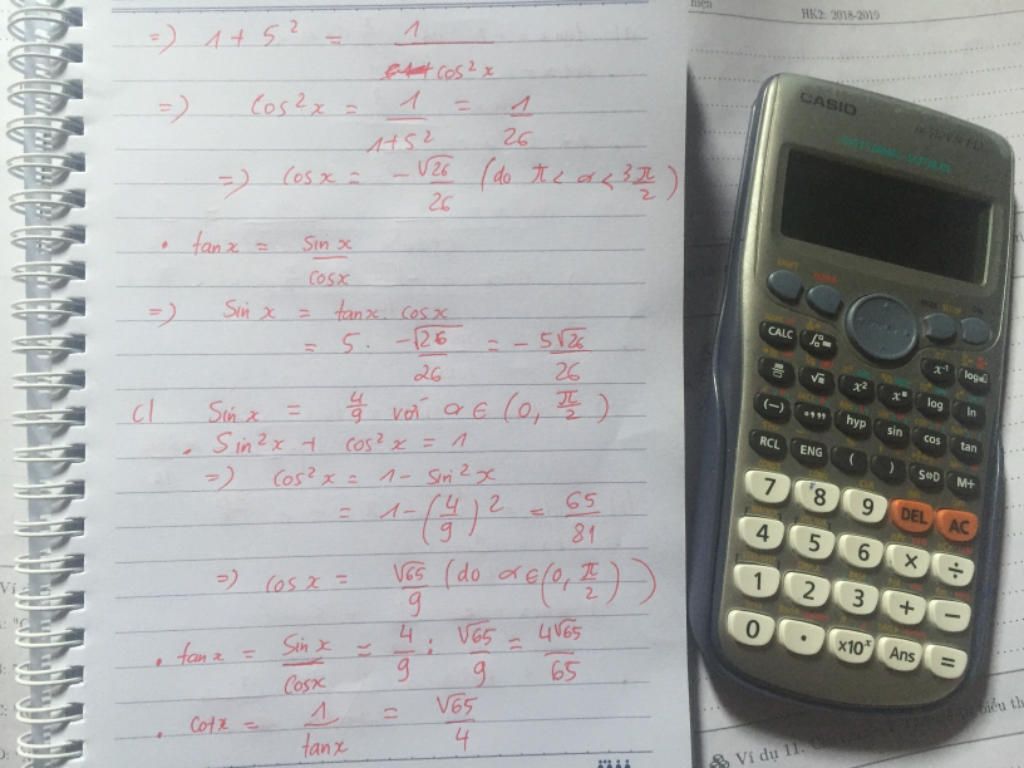 =) 1 + 5² = 1/cos²x
=) cos²x = 1/(1+5²) = 1/26
=) cosx = -√26/26 (do π < α < 3π/2)
. tanx = sinx/cosx
=) Sinx = tanx. cosx
= 5. -√26/26 = - 5√26/26
c) Sinx = 4/9 với α ∈ (0, π/2)
. Sin²x + cos²x = 1
=) cos²x = 1 - sin²x
= 1 - (4/9)² = 65/81
=) cosx = √65/9 (do α ∈ (0, π/2))
. tanx = Sinx/cosx = 4/9 : √65/9 = 4√65/65
. cotx = 1/tanx = √65/4
HK2: 2018-2019
CASIO
CALC x⁻¹
√ x² log ln
(−) hyp sin cos tan
RCL ENG ( ) S⇔D M+
7 8 9 DEL AC
4 5 6 × ÷
1 2 3 + −
0 . ×10ˣ Ans =
Ví dụ 11.